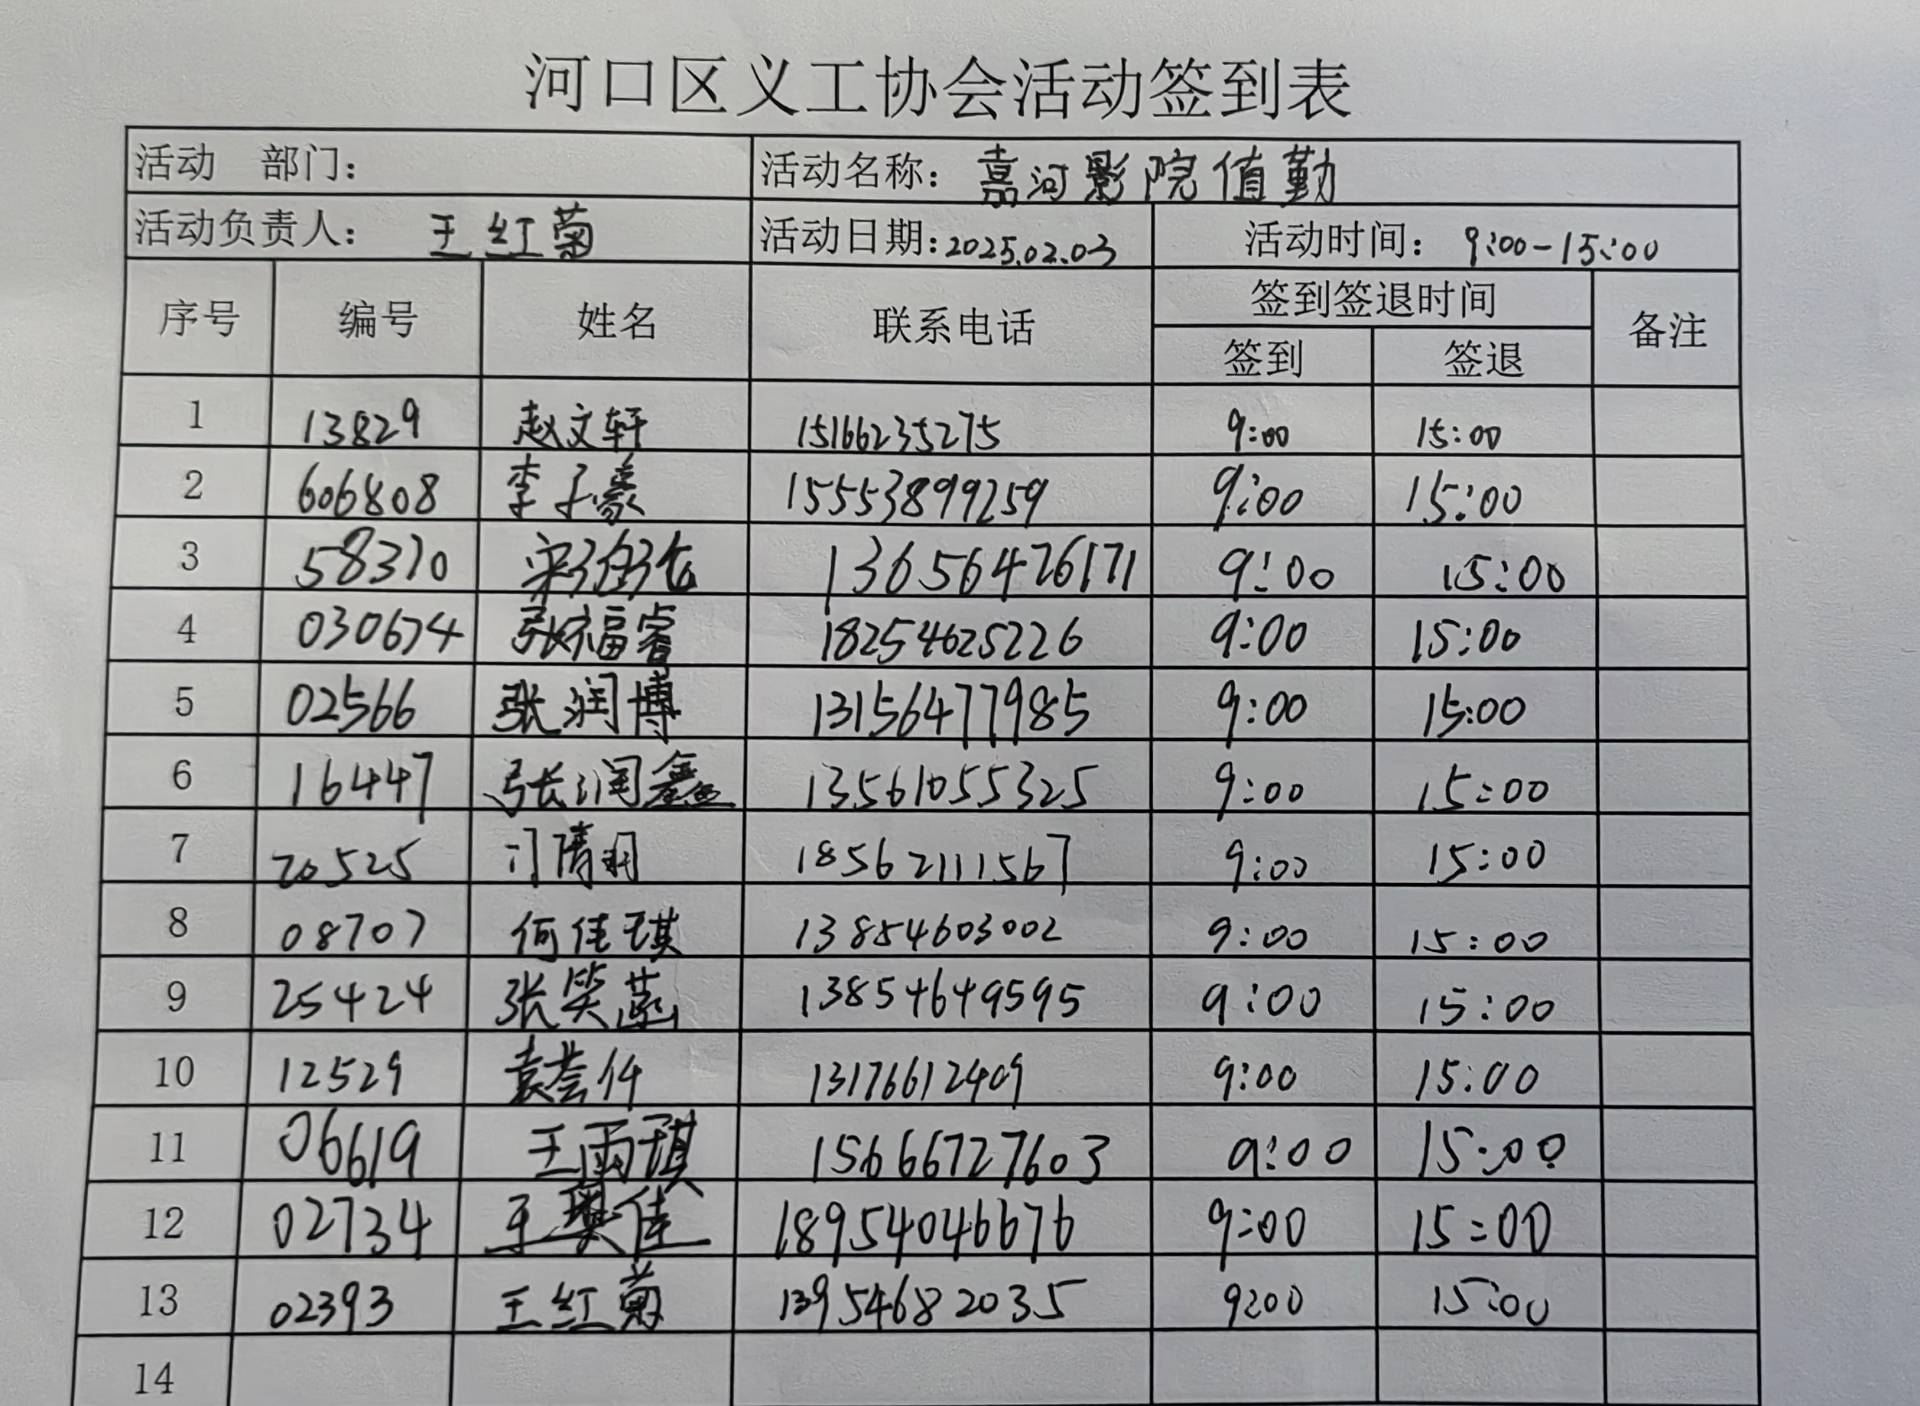 河口区义工协会活动签到表
活动 部门： 活动名称：嘉河影院值勤
活动负责人：王红菊 活动日期：2025.02.03 活动时间：9:00-15:00
序号 编号 姓名 联系电话 签到签退时间 备注
签到 签退
1 13829 赵文轩 15166235275 9:00 15:00
2 606808 李子豪 15553899259 9:00 15:00
3 58370 宋 13656476171 9:00 15:00
4 030674 张福睿 18254625226 9:00 15:00
5 02566 张润博 13156477985 9:00 15:00
6 16447 张润鑫 13561055325 9:00 15:00
7 20525 门清羽 18562111567 9:00 15:00
8 08707 何佳琪 13854603002 9:00 15:00
9 25424 张笑菡 13854649595 9:00 15:00
10 12529 袁 13176612409 9:00 15:00
11 06619 王雨琪 15666727603 9:00 15:00
12 02734 王奥佳 18954046676 9:00 15:00
13 02393 王红菊 13954682035 9:00 15:00
14